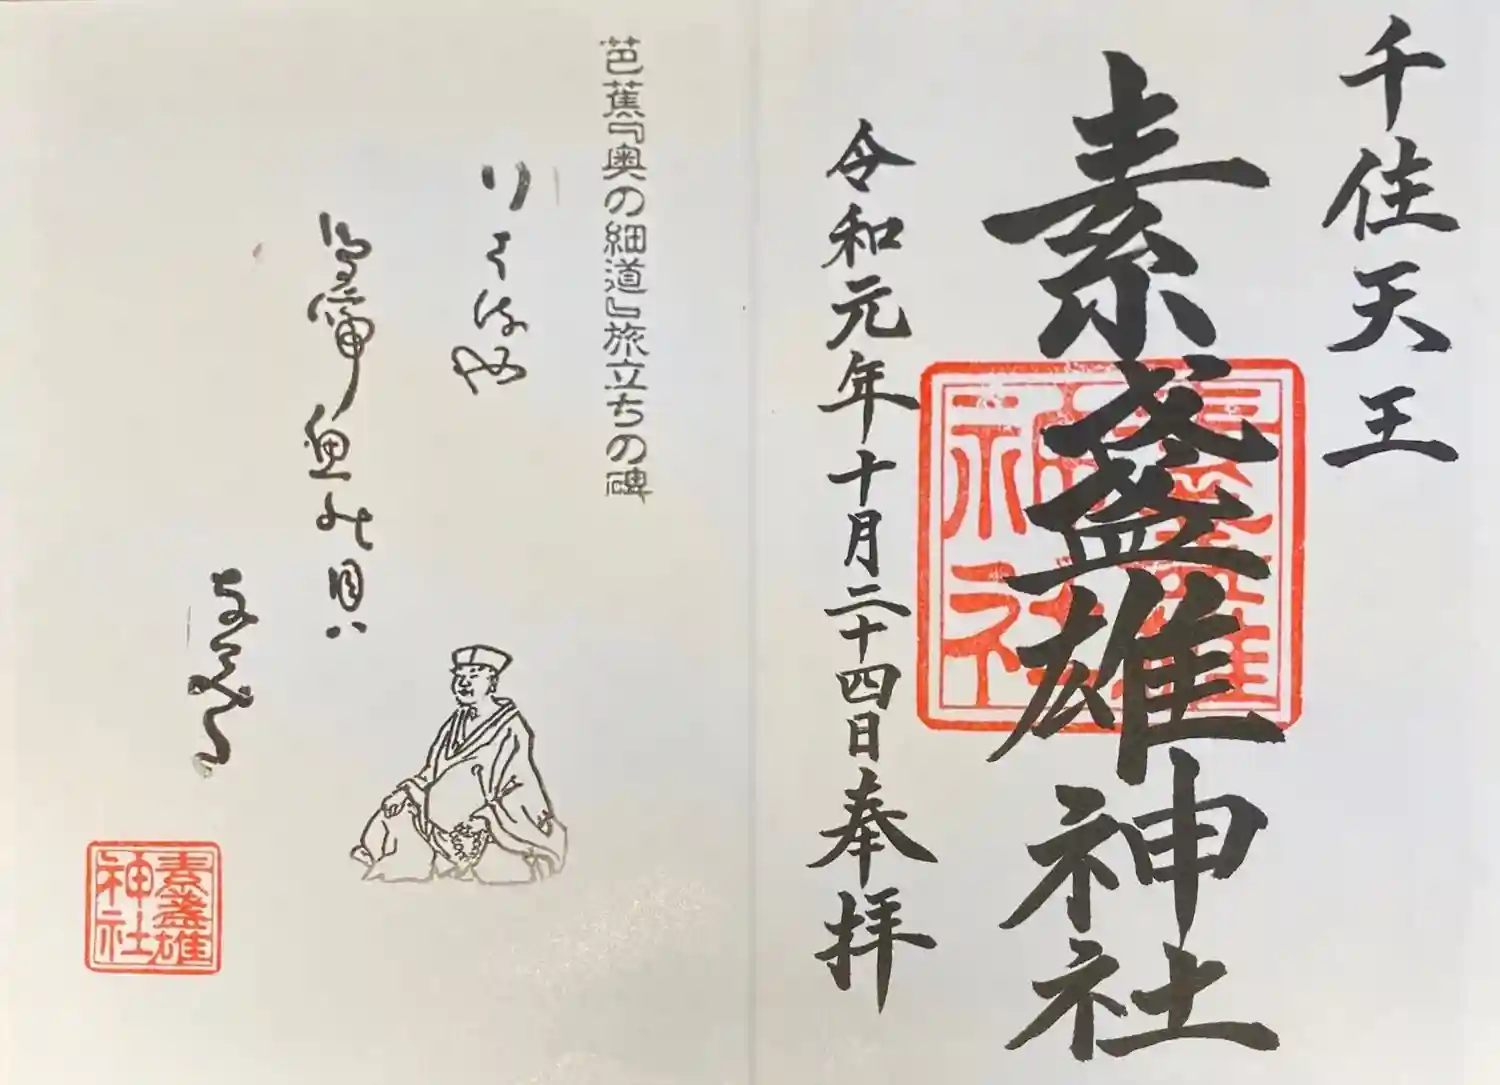 千住天王
素盞雄神社
素盞雄神社
令和元年十月二十四日奉拝
芭蕉『奥の細道』旅立ちの碑
行くはるや
鳥啼魚の目ハ
素盞雄神社